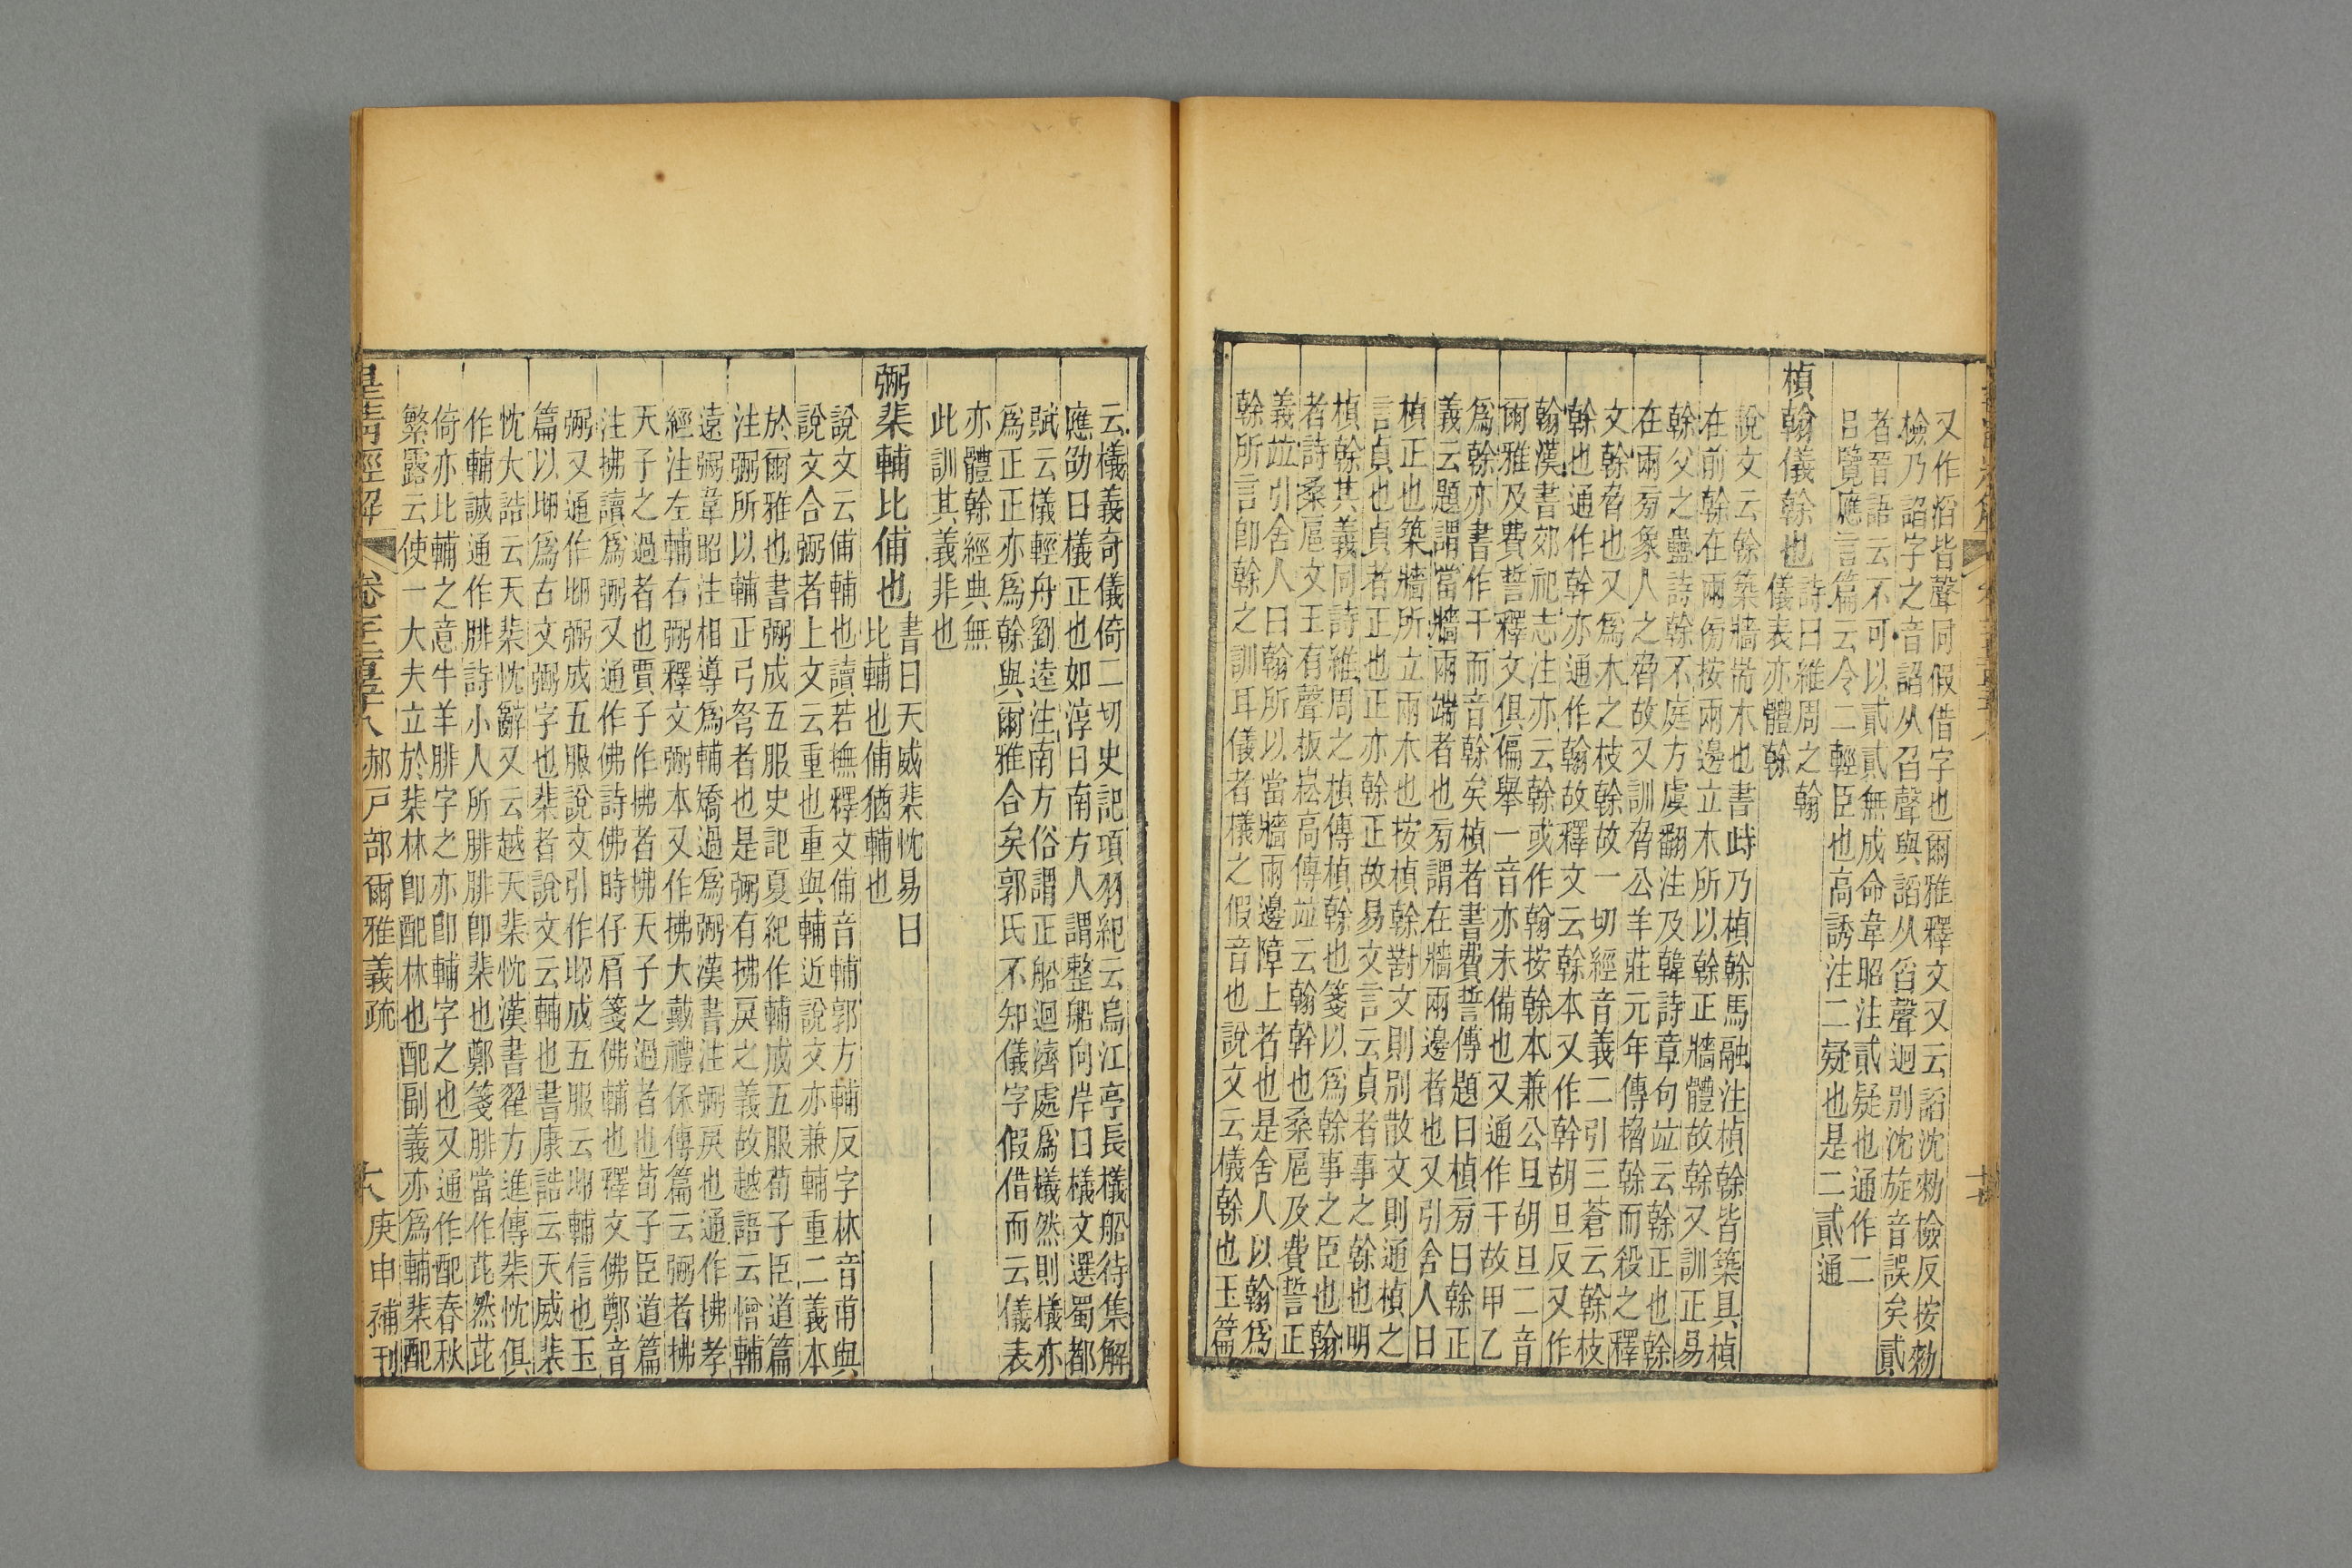 又作滔皆聲同假借字也爾雅釋文又云謟沈勑檢反按勑
檢乃諂字之音謟从召聲與謟从舀聲迥别沈旋音誤矣貳
者晉語云不可以貳貳無成命韋昭注貳疑也通作二
呂覽應言篇云令二輕臣也高誘注二疑也是二貳通
楨翰儀榦也
詩曰維周之翰
儀表亦體榦
說文云榦築牆耑木也書峙乃楨榦馬融注楨榦皆築具楨
在前榦在兩㫄按兩邊立木所以榦正牆體故榦又訓正易
榦父之蠱詩榦不庭方虞翻注及韓詩章句竝云榦正也榦
在兩㫄象人之脅故又訓脅公羊莊元年傳搚榦而殺之釋
文榦脅也又爲木之枝榦故一切經音義二引三蒼云榦枝
榦也通作幹亦通作翰故釋文云榦本又作幹胡旦反又作
翰漢書郊祀志注亦云榦或作翰按榦本兼公旦胡旦二音
爾雅及費誓釋文俱偏舉一音亦未備也又通作干故甲乙
爲榦亦書作干而音榦矣楨者書費誓傳題曰楨㫄曰榦正
義云題謂當牆兩端者也㫄謂在牆兩邊者也又引舍人曰
楨正也築牆所立兩木也按楨榦對文則别散文則通楨之
言貞也貞者正也正亦榦正故易文言云貞者事之榦也明
楨榦其義同詩維周之楨傳楨榦也箋以爲榦事之臣也翰
者詩桑扈文王有聲板崧高傳竝云翰幹也桑扈及費誓正
義竝引舍人曰翰所以當牆兩邊障上者也是舍人以翰爲
榦所言卽榦之訓耳儀者檥之假音也說文云儀榦也玉篇
云檥義奇儀倚二切史記項羽紀云烏江亭長檥船待集解
應劭曰檥正也如淳曰南方人謂整船向岸曰檥文選蜀都
賦云儀輕舟劉逵注南方俗謂正船迴濟處爲檥然則檥亦
爲正正亦爲榦與爾雅合矣郭氏不知儀字假借而云儀表
亦體榦經典無
此訓其義非也
弼棐輔比俌也
書曰天威棐忱易曰
比輔也俌猶輔也
說文云俌輔也讀若撫釋文俌音輔郭方輔反字林音甫與
說文合弼者上文云重也重與輔近說文亦兼輔重二義本
於爾雅也書弼成五服史記夏紀作輔成五服荀子臣道篇
注弼所以輔正弓弩者也是弼有拂戾之義故越語云憎輔
遠弼韋昭注相導爲輔矯過爲弼漢書注弼戾也通作拂孝
經注左輔右弼釋文弼本又作拂大戴禮保傅篇云弼者拂
天子之過者也賈子作拂者拂天子之過者也荀子臣道篇
注拂讀爲弼又通作佛詩佛時仔肩箋佛輔也釋文佛鄭音
弼又通作㚕弼成五服說文引作㚕成五服云㚕輔信也玉
篇以㚕爲古文弼字也棐者說文云輔也書康誥云天威棐
忱大誥云天棐忱辭又云越天棐忱漢書翟方進傳棐忱俱
作輔誠通作腓詩小人所腓腓卽棐也鄭箋腓當作芘然芘
倚亦比輔之意牛羊腓字之亦卽輔字之也又通作配春秋
繁露云使一大夫立於棐林卽配林也配副義亦爲輔棐配
皇清經解 卷千二百五十八 郝戸部爾雅義疏 大 庚申補刊